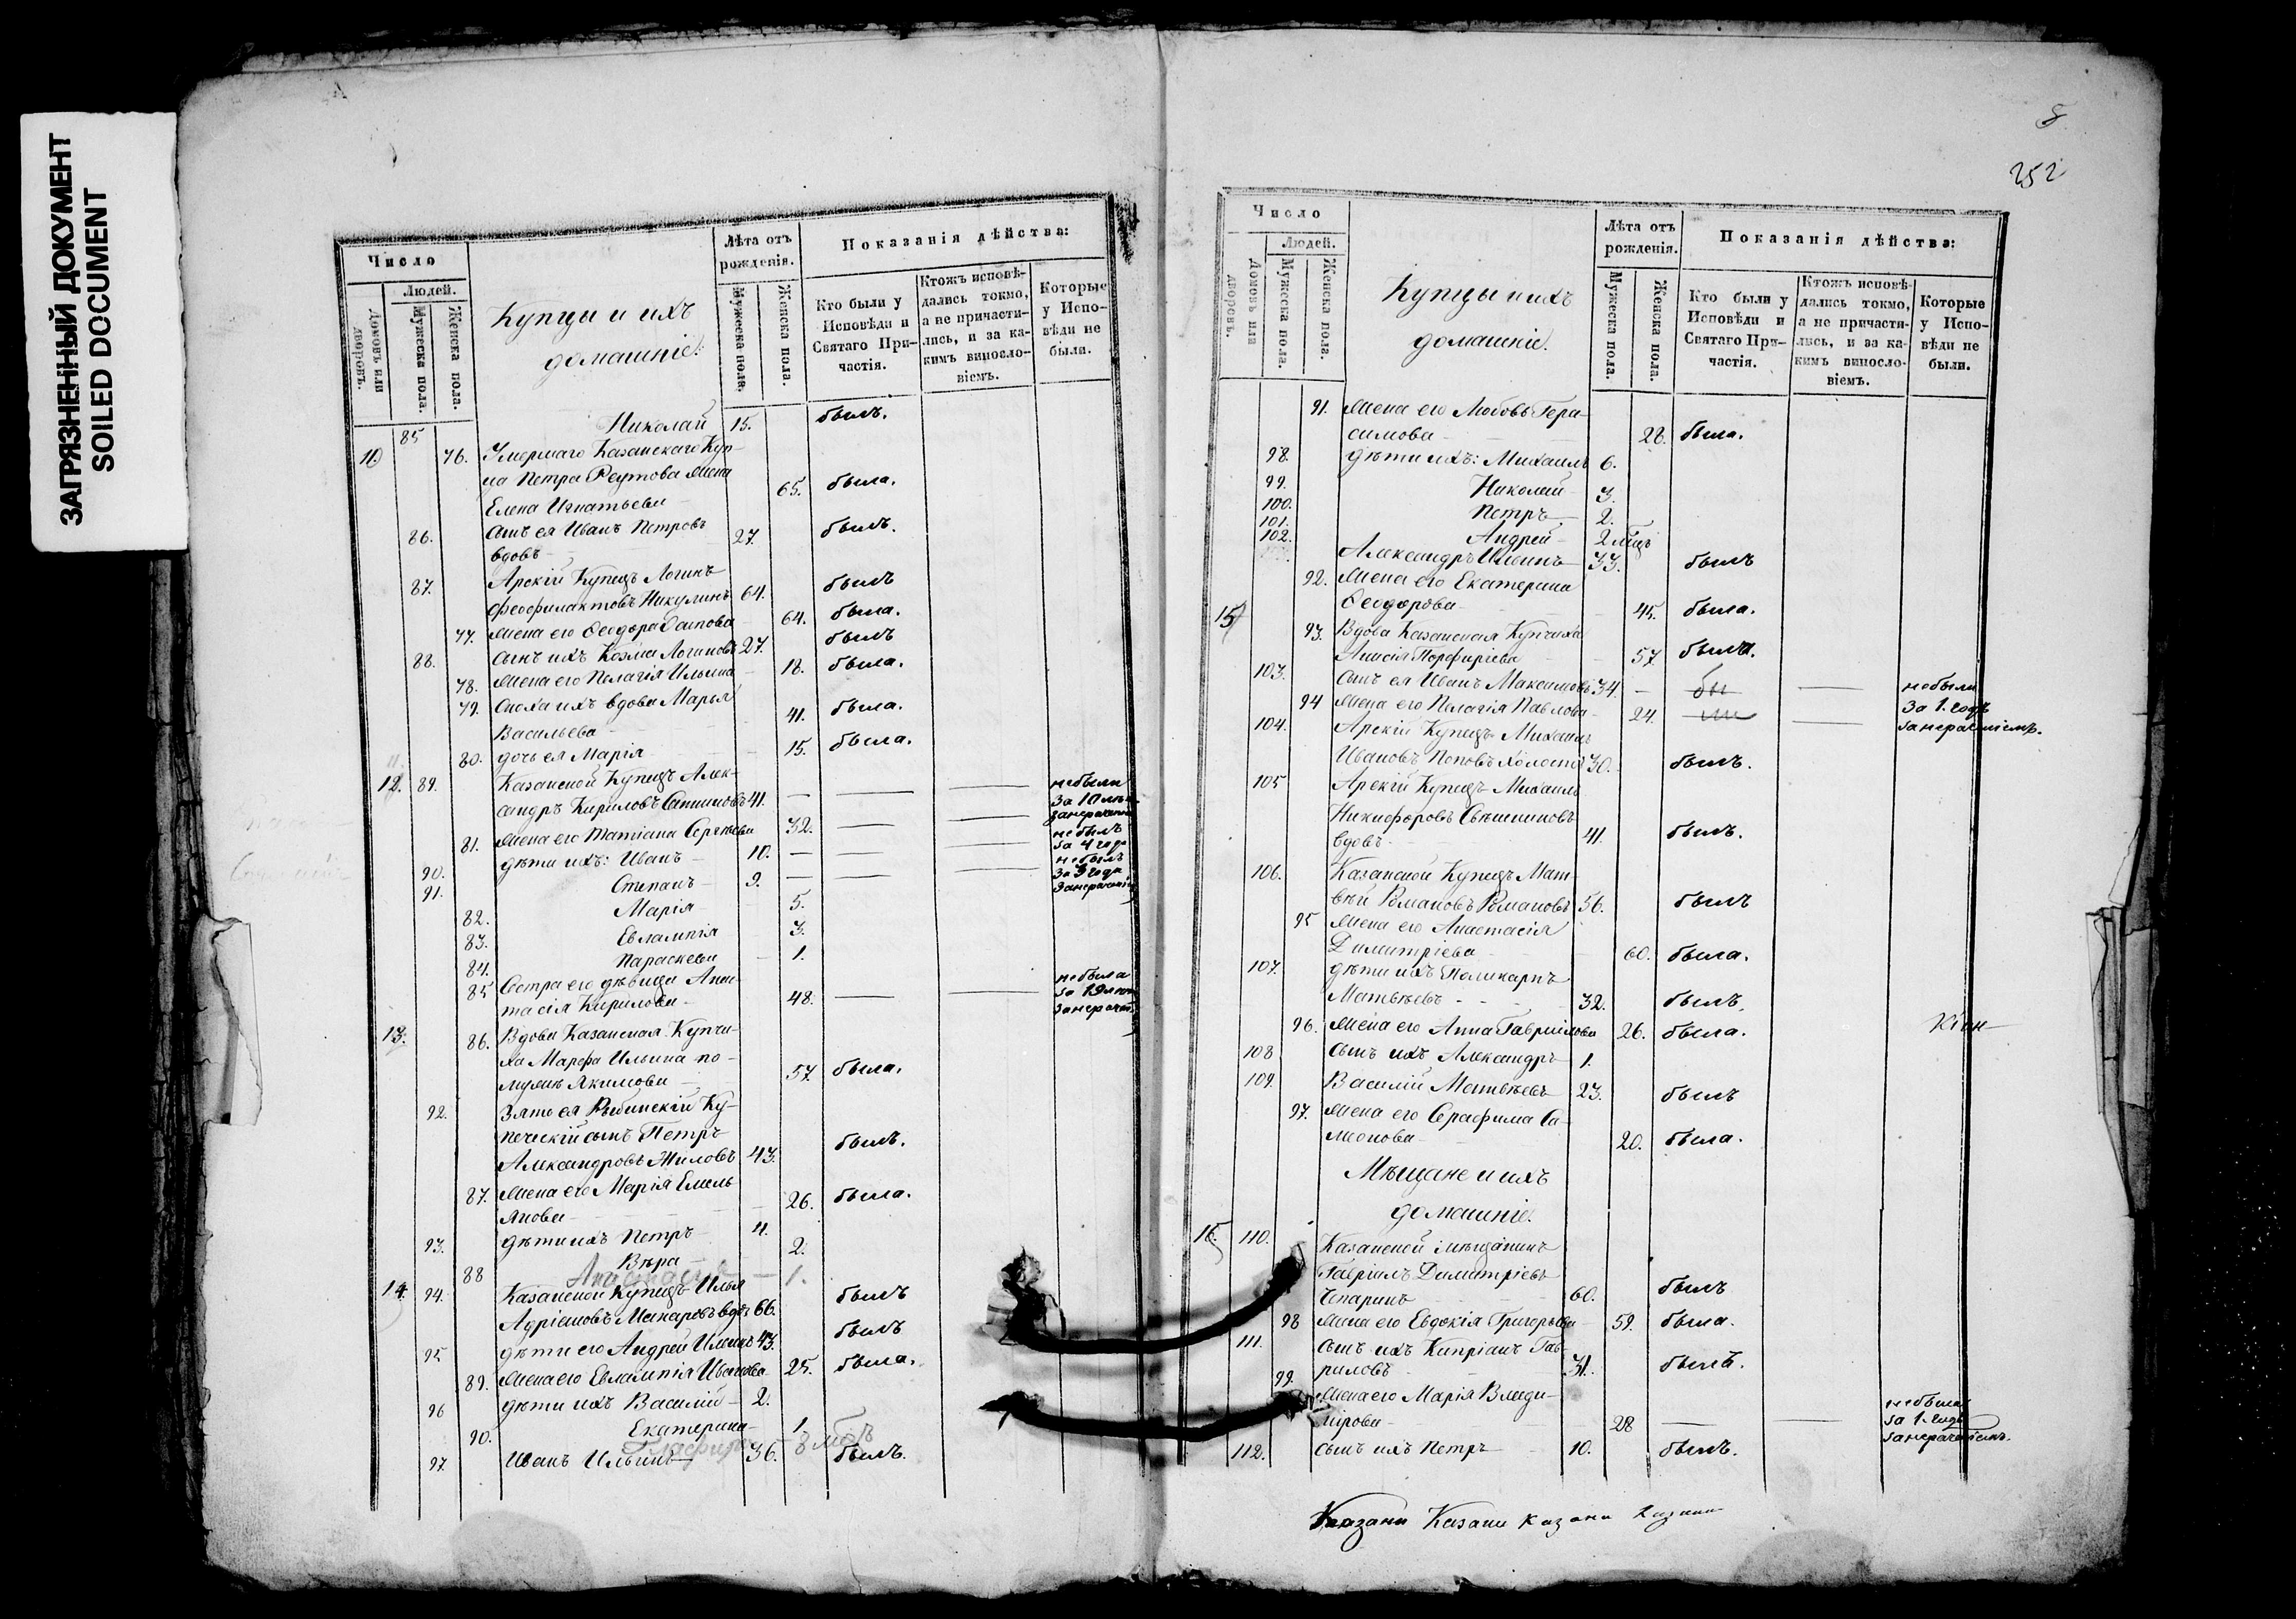 ЗАГРЯЗНЕННЫЙ ДОКУМЕНТ
SOILED DOCUMENT
Число
Людей.
Домовъ или дворовъ.
Мужеска пола.
Женска пола.
Купцы и ихъ
домашніе.
Лѣта отъ рожденія.
Мужеска пола.
Женска пола.
Показанія дѣйства:
Кто были у Исповѣди и Святаго Причастія.
Ктожъ исповѣдались токмо, а не причастились, и за какимъ винословіемъ.
Которые у Исповѣди не были.
85 Николай 15. былъ.
10 76. Умершаго Казанскаго Куп-
ца Петра Реутова жена
Елена Игнатьева 65. была.
86. Сынъ ея Иванъ Петровъ
вдовъ 27. былъ.
87. Арскій Купецъ Логинъ
Феофилактовъ Никулинъ 64. былъ
77. Жена его Ѳеодора 64. была.
88. Сынъ ихъ Козма Логиновъ 27. былъ
78. Жена его Пелагія Ильина 18. была.
79. Сноха ихъ вдова Марья
Васильева 41. была.
11. 80. дочь ея Марія 15. была.
12. 89. Казанской Купецъ Алек-
сандръ Кириловъ 41. — — — небыли
за 10 лѣтъ
81. Жена его Татіана Сергѣева 32. — — небылъ
за 4 года
90. дѣти ихъ: Иванъ 10. — — — небылъ
за 3 года
91. Степанъ 9. — — —
82. Марія 5.
83. Евлампія 3.
84. Параскева 1.
85 Сестра его дѣвица Анас-
тасія Кирилова 48. — — небыла
за 19 лѣтъ
13. 86. Вдова Казанская Купчи-
ха Марфа Ильина по
мужѣ Якимова 57. была.
92. Зять ея Рыбинскій Ку-
печескій сынъ Петръ
Александровъ Жиловъ 43. былъ.
87. Жена его Марія Емель
янова 26. была.
93. Дѣти ихъ Петръ 4.
88 Вѣра 2.
Анастасія — 1.
14. 94. Казанской Купецъ Илья
Адріановъ Макаровъ вдовъ 66. былъ
95 дѣти его Андрей Ильинъ 43. былъ
89. Жена его Евлампія Иванова 25. была.
96 дѣти ихъ Василій 2.
90. Екатерина 1.
8 мѣс
97. Иванъ Ильинъ 36. былъ.
8
252
Число
Людей.
Домовъ или дворовъ.
Мужеска пола.
Женска пола.
Купцы и ихъ
домашніе.
Лѣта отъ рожденія.
Мужеска пола.
Женска пола.
Показанія дѣйства:
Кто были у Исповѣди и Святаго Причастія.
Ктожъ исповѣдались токмо, а не причастились, и за какимъ винословіемъ.
Которые у Исповѣди не были.
91. Жена его Любовь Гера-
симова 28. была.
98. Дѣти ихъ: Михаилъ 6.
99. Николай 3.
100. Петръ 2.
101. Андрей 2 мѣц
102. Александръ Ильинъ 33. былъ
92. Жена его Екатерина
Ѳеодорова 45. была.
15 93. Вдова Казанская Купчиха
Анисія Порфиріева 57. была.
103. Сынъ ея Иванъ Максимовъ 34 — бы — небыли
94 Жена его Пелагія Павлова 24. — за 1. годъ
занераченіемъ.
104. Арскій Купецъ Михаилъ
Ивановъ Поповъ холостъ 30. былъ.
105 Арскій Купецъ Михаилъ
Никифоровъ Свѣшниковъ
вдовъ 41. былъ.
106. Казанской Купецъ Мат-
вѣй Романовъ Романовъ 56. былъ
95 Жена его Анастасія
Димитріева 60. была.
107. дѣти ихъ Поликарпъ
Матвѣевъ 32. былъ.
96. Жена его Анна Гавриилова 26. была.
108 Сынъ ихъ Александръ 1.
109. Василій Матвѣевъ 23. былъ
97. Жена его Серафима Са-
монова 20. была.
Мѣщане и ихъ
домашніе.
16. 110. Казанской мѣщанинъ
Гавріилъ Димитріевъ
Чепаринъ 60. былъ
98 Жена его Евдокія Григорьева 59. была.
111. Сынъ ихъ Кипріанъ Гав-
риловъ 31. былъ.
99. Жена его Марія Влади-
мірова 28 — — небыла
за 1. годъ
занераченіемъ.
112. Сынъ ихъ Петръ 10. былъ.
Казани Казани Казани